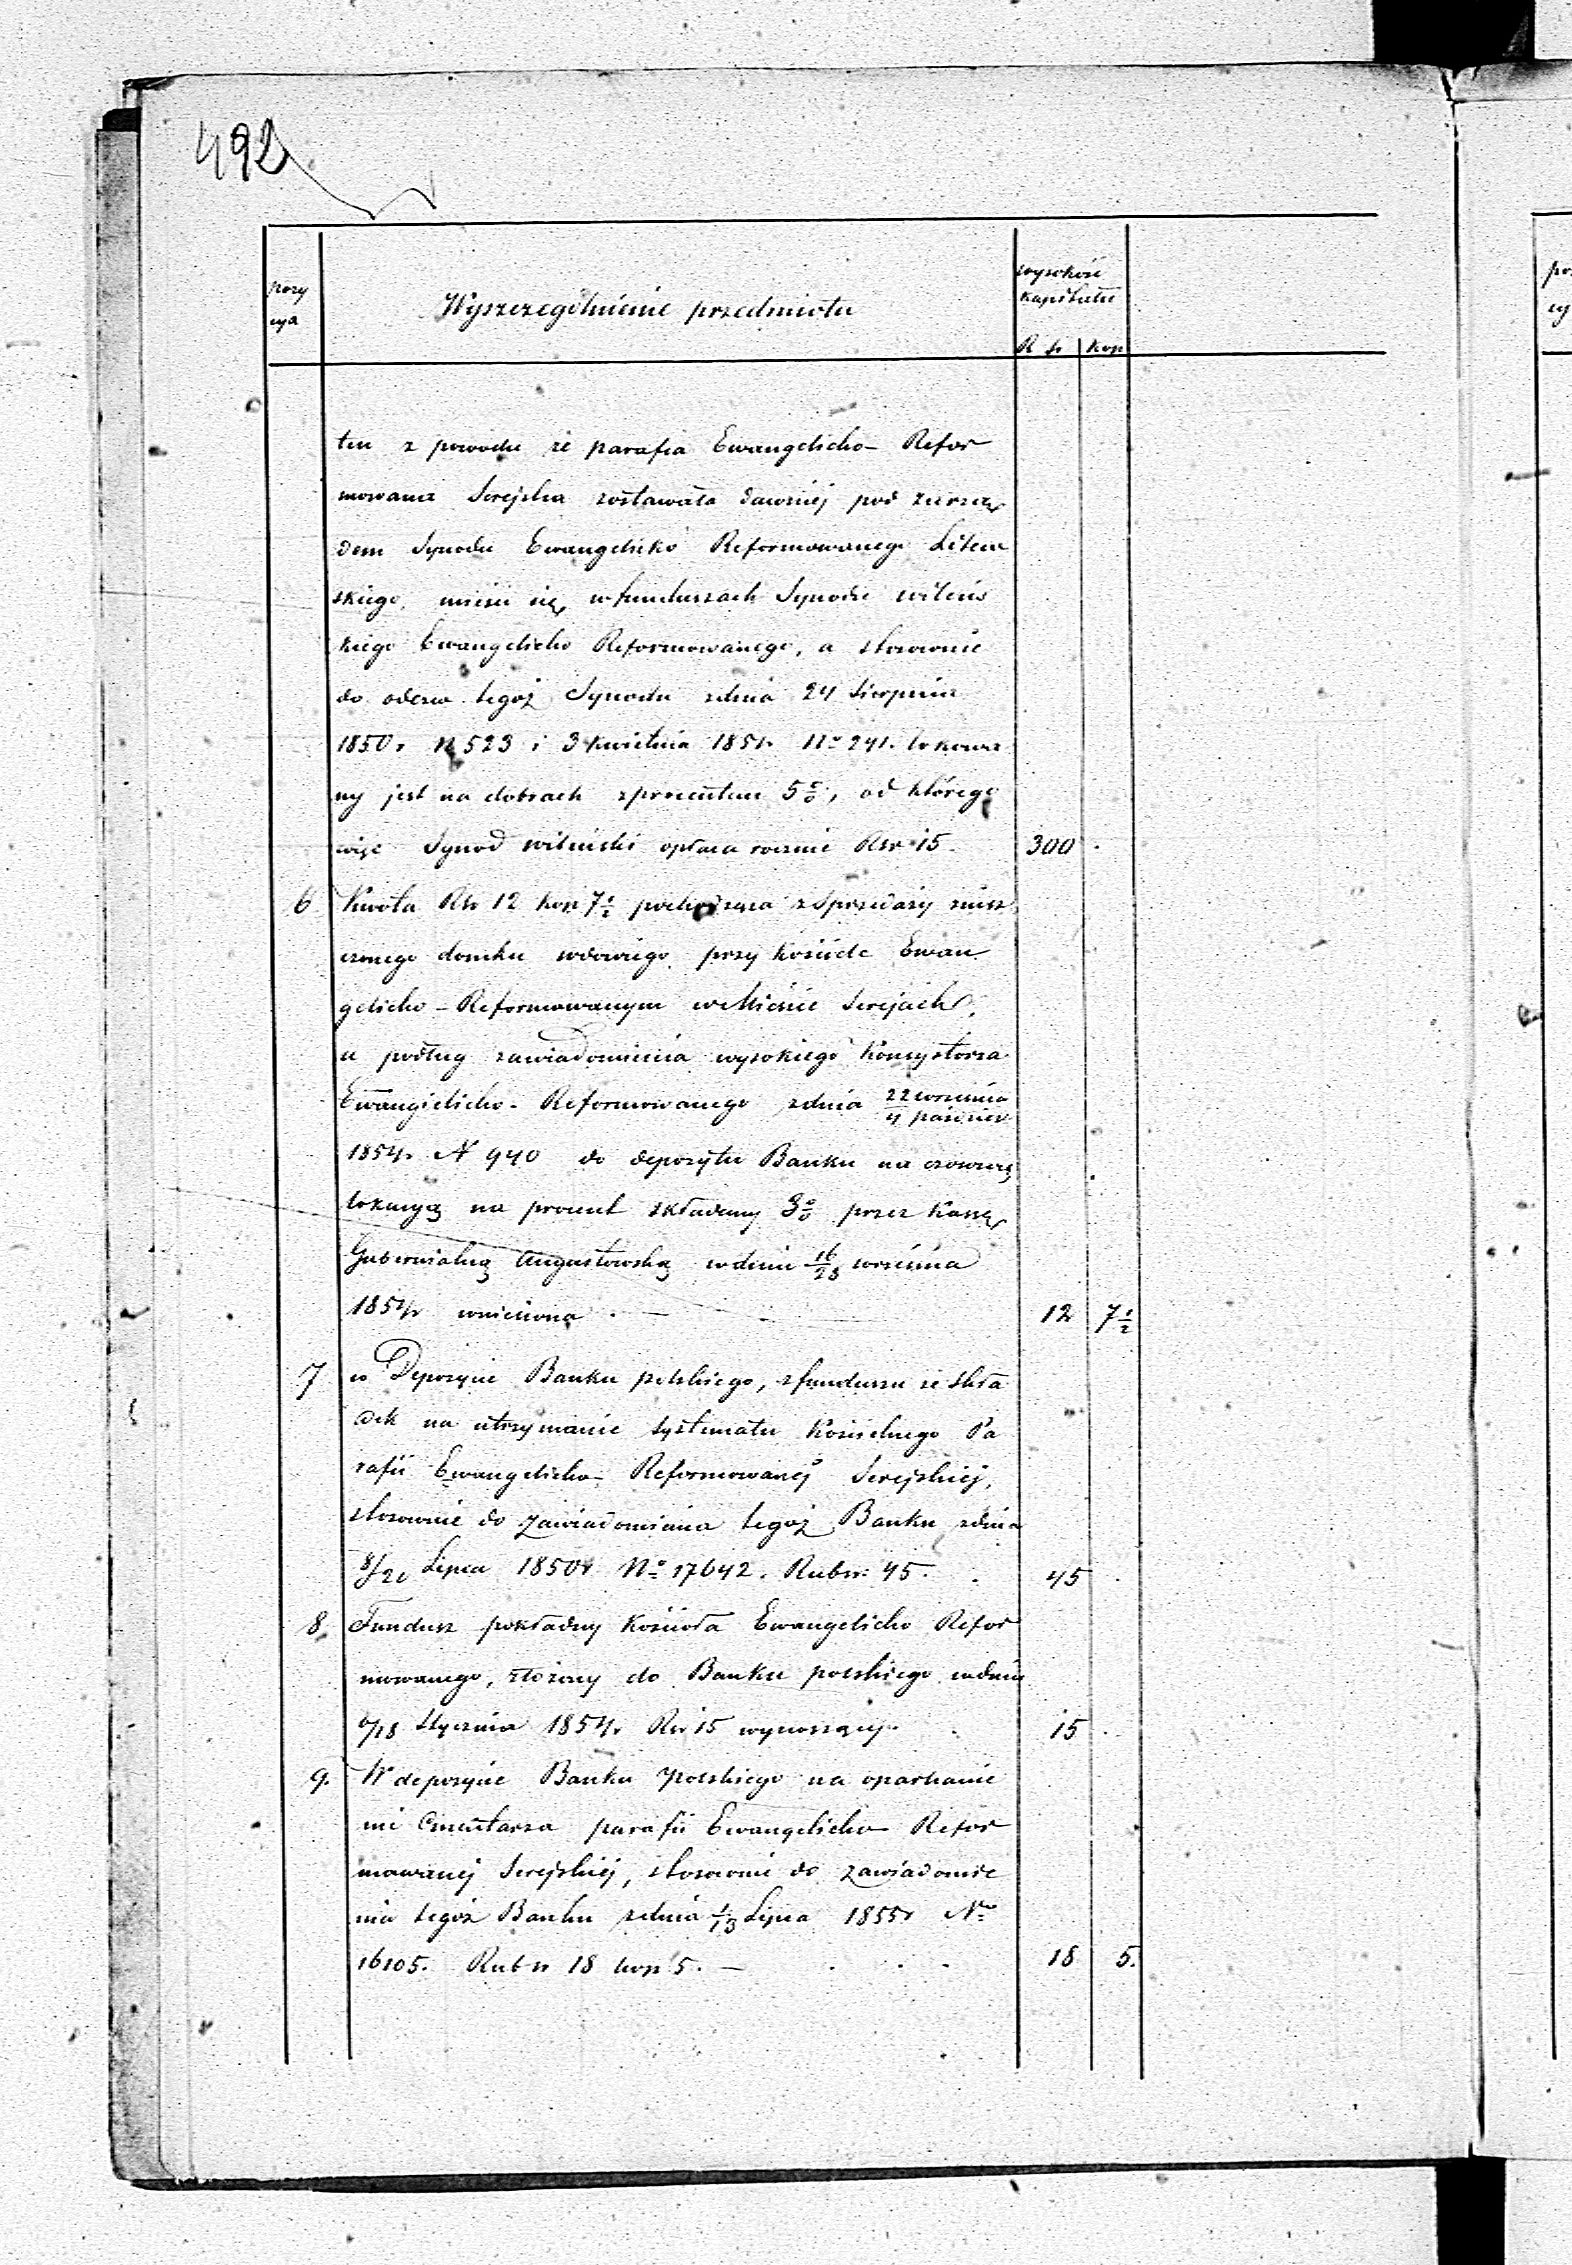 492
pozy
cya
Wyszczególnienie przedmiotu
wysokość
kapitału
R sr kop
ten z powodu że parafia Ewangelicko- Refor
mowana Serejska zostawała dawniéj pod zarzą
dem Synodu Ewangelicko Reformowanego Litew
skiego, mieści się w funduszach Synodu wileńs
kiego Ewangelicko Reformowanego, a stosownie
do odezw tegoż Synodu zdnia 24 Sierpnia
1850r N 523 i 3 kwietnia 1851r No 241. lokowa
ny jest na dobrach z procentem 5%, od którego
więc Synod wileński opłaca rocznie Rsr 15. 300
6 Kwota Rsr 12 kop 7½ pochodząca z sprzedaży znisz
czonego domku wdowiego przy kościele Ewan
gelicko-Reformowanym w Mieście Serejach,
a podług zawiadomienia wysokiego Konsystorza
Ewangielicko-Reformowanego zdnia 22 września
4 paździer
1854r N 940 do depozytu Banku na
lokacyą na procent składany 3% przez Kassę
Gubernialną Augustowską w dniu 16/28 września
1854r wniesiona. 12 7½
7 w Depozycie Banku polskiego, z funduszu ze skła
dek na utrzymanie systematu Kościelnego Pa
rafii Ewangelicko-Reformowanéj Serejskiéj,
stosownie do zawiadomienia tegoż Banku zdnia
8/20 Lipca 1850r No 17642. Rubsr. 45. 45
8. Fundusz pokładny Kościoła Ewangelicko Refor
mowanego, złożony do Banku polskiego w dniu
6/18 stycznia 1854r Rsr 15 wynoszący. 15
9. W depozycie Banku Polskiego na oparkanie
nie Cmentarza parafii Ewangelicko Refor
mowanéj Serejskiéj, stosownie do zawiadomie
nia tegoż Banku zdnia 1/13 Lipca 1855r No
16105. Rub sr 18 kop 5. — 18 5.